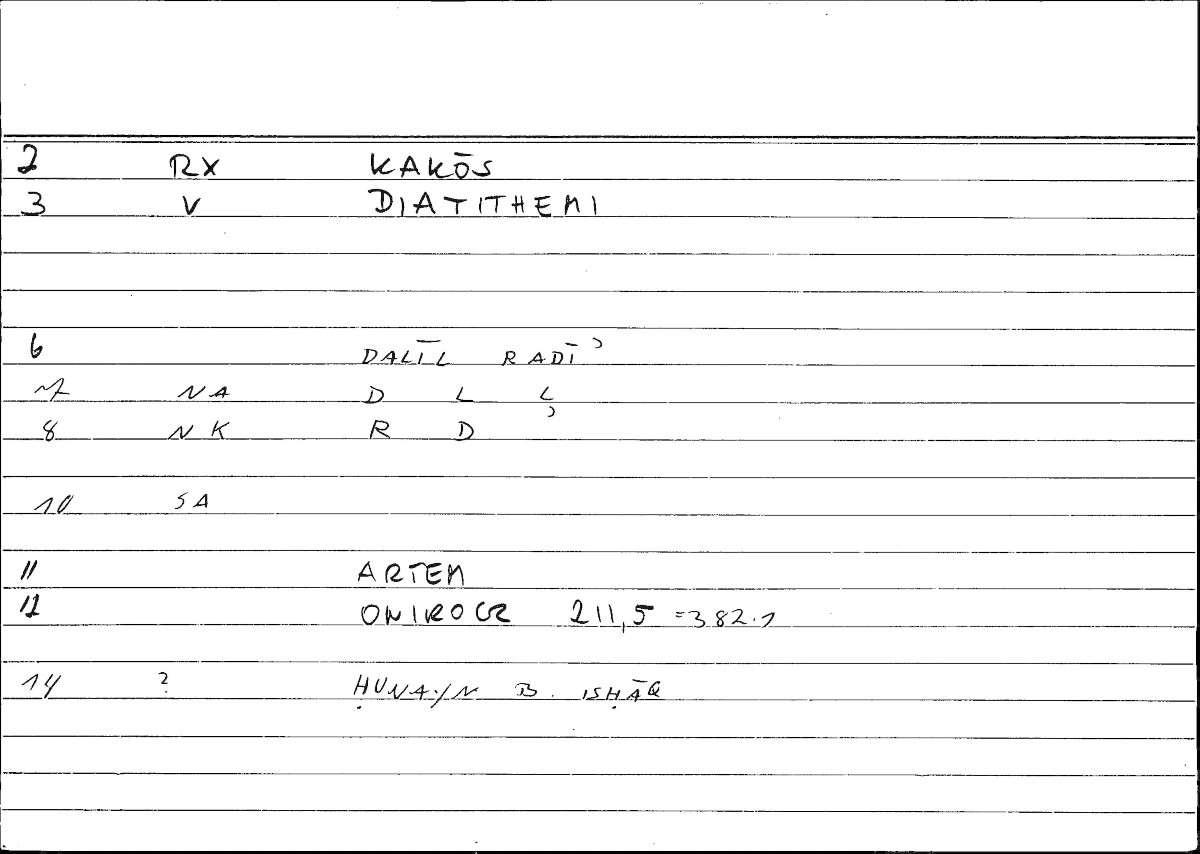 2 RX KAKŌS
3 V DIATITHEMI
6 DALĪL RADĪʾ
7 NA D L L
8 NK R D ʾ
10 SA
11 ARTEM
12 ONIROCR 211,5 =382.1
14 ? ḤUNAYN B. ISḤĀQ